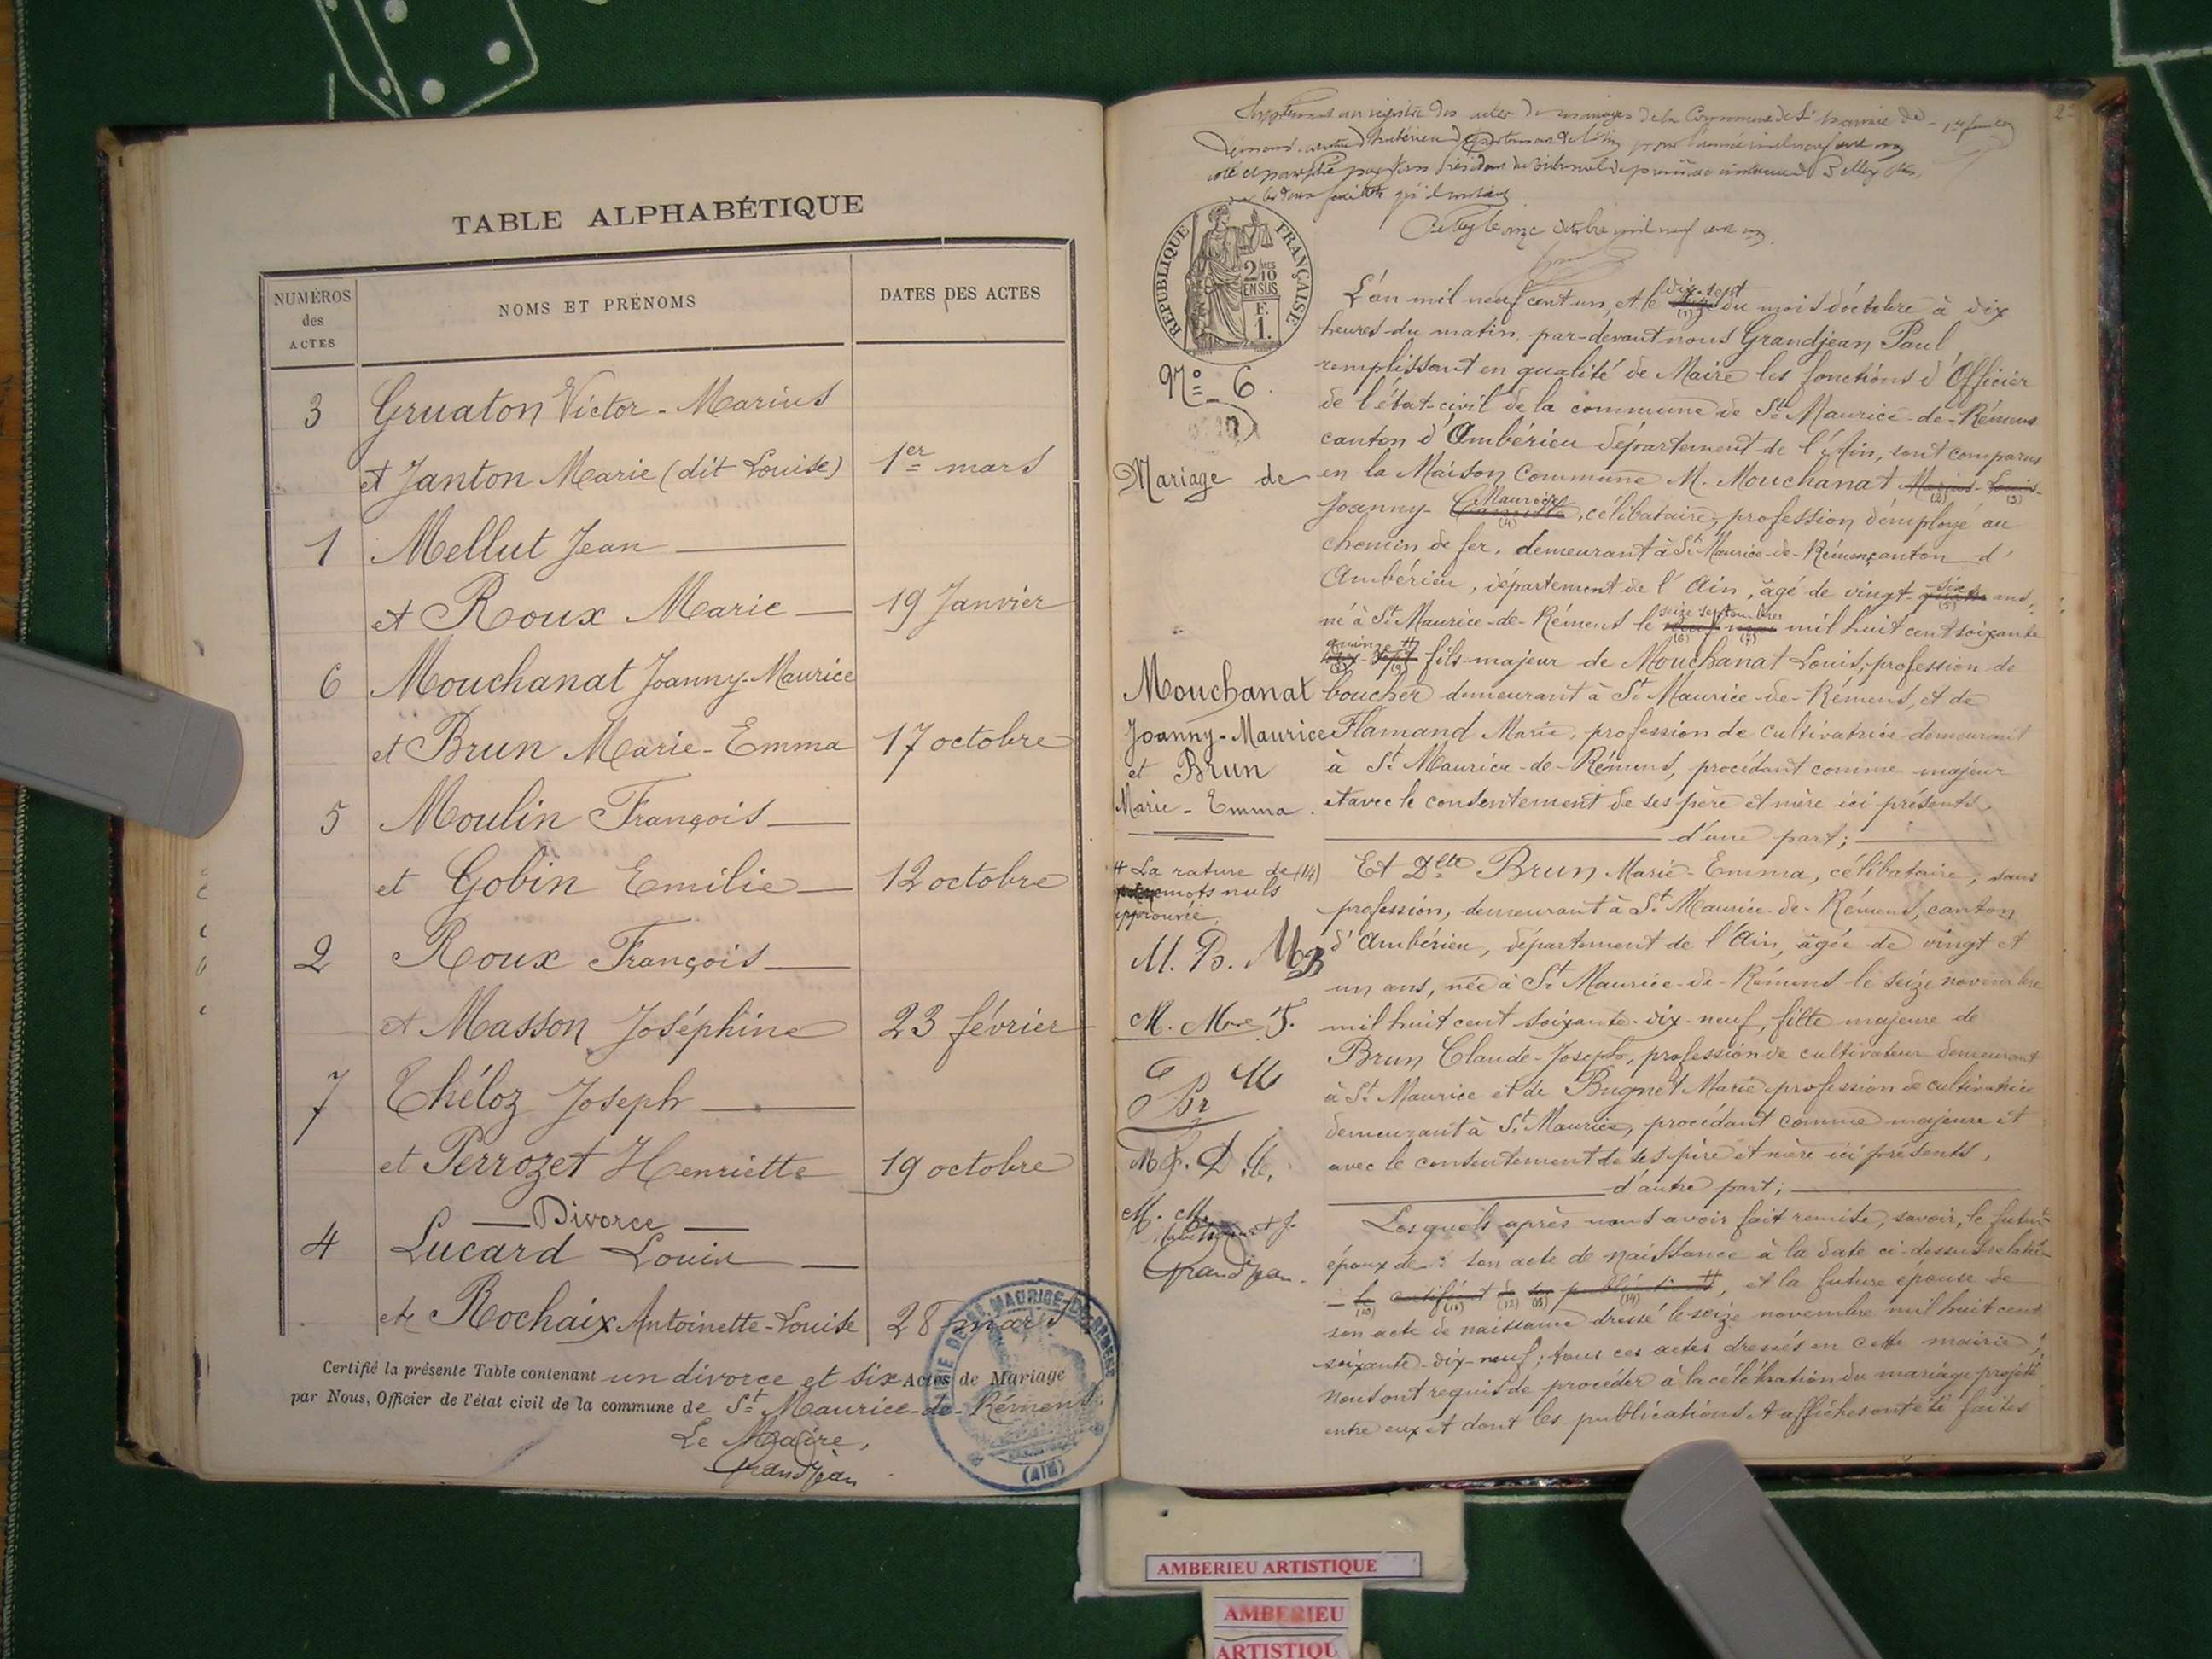 TABLE ALPHABÉTIQUE
NUMÉROS des ACTES
NOMS ET PRÉNOMS
DATES DES ACTES
3 Gruaton Victor-Marius
et Janton Marie (dit Louise) 1er mars
1 Mellut Jean
et Roux Marie 19 Janvier
6 Mouchanat Joanny-Maurice
et Brun Marie-Emma 17 octobre
5 Moulin François
et Gobin Emilie 12 octobre
2 Roux François
et Masson Joséphine 23 février
7 Théloz Joseph
et Perrozet Henriette 19 octobre
Divorce
4 Lucard Louis
et Rochaix Antoinette-Louise 28 mars
Certifié la présente Table contenant un divorce et six Actes de Mariage
par Nous, Officier de l'état civil de la commune de St Maurice-de-Rémens
Le Maire,
Grandjean
MAIRIE DE ST MAURICE-DE-REMENS
(AIN)
2
Supplément au registre des actes de mariages de la Commune de St Maurice de
pour l'année mil neuf cent un
coté et paraphé par Nous Président du tribunal de première instance de Belley
les deux feuillets qu'il contient
Belley le onze octobre mil neuf cent un.
RÉPUBLIQUE FRANÇAISE
2/10
EN SUS
F.
1.
No 6.
Mariage de
Mouchanat
Joanny-Maurice
et Brun
Marie-Emma.
# La rature de (14)
mots nuls
approuvée.
M. B. MB
M. Mme F.
C M
Br
M. M.
Grandjean.
L'an mil neuf cent un, et le dix-sept (1) du mois d'octobre à dix
heures du matin, par-devant nous Grandjean Paul
remplissant en qualité de Maire les fonctions d'Officier
de l'état-civil de la commune de St Maurice-de-Rémens
canton d'Ambérieu département de l'Ain, sont comparus
en la Maison Commune M. Mouchanat Marius (2) - Louis (3) -
Joanny - Maurice (4), célibataire, profession d'employé au
chemin de fer, demeurant à St Maurice-de-Rémens canton d'
Ambérieu, département de l'Ain, âgé de vingt-six (5) ans,
né à St Maurice-de-Rémens le seize septembre (6) (7) mil huit cent soixante
quinze # (8) (9) fils majeur de Mouchanat Louis, profession de
boucher demeurant à St Maurice-de-Rémens, et de
Flamand Marie, profession de cultivatrice demeurant
à St Maurice-de-Rémens, procédant comme majeur
et avec le consentement de ses père et mère ici présents,
d'une part;
Et Dlle Brun Marie-Emma, célibataire, sans
profession, demeurant à St Maurice-de-Rémens, canton
d'Ambérieu, département de l'Ain, âgée de vingt et
un ans, née à St Maurice-de-Rémens le seize novembre
mil huit cent soixante-dix-neuf, fille majeure de
Brun Claude-Joseph, profession de cultivateur demeurant
à St Maurice et de Bugnet Marie profession de cultivatrice
demeurant à St Maurice, procédant comme majeure et
avec le consentement de ses père et mère ici présents,
d'autre part;
Lesquels après nous avoir fait remise, savoir, le futur
époux de: son acte de naissance à la date ci-dessus relatée
- le (10) certificat (11) de (12) ses (13) publications (14) #, et la future épouse de
son acte de naissance dressé le seize novembre mil huit cent
soixante-dix-neuf; tous ces actes dressés en cette mairie;
nous ont requis de procéder à la célébration du mariage projeté
entre eux et dont les publications et affiches ont été faites
AMBERIEU ARTISTIQUE
AMBERIEU
ARTISTIQU